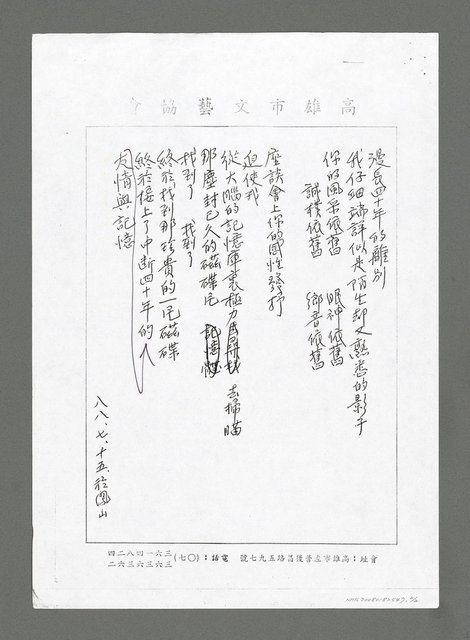 高雄市文藝協會
漫長四十年的離別
我仔細端詳似是陌生卻又熟悉的影子
你的風采依舊 眼神依舊
誠樸依舊 鄉音依舊
座談會上你的感性發抒
迫使我
從大腦的記憶庫裏極力 去掃瞄
那塵封已久的磁碟片
找到了 找到了
終於找到那珍貴的一片磁碟
終於接上了中断四十年的
友情與記憶
八八、七、十五、於鳳山
會址：高雄市左營後昌路五九七號 電話：(〇七) 三六一四八二四
三六三六三六二